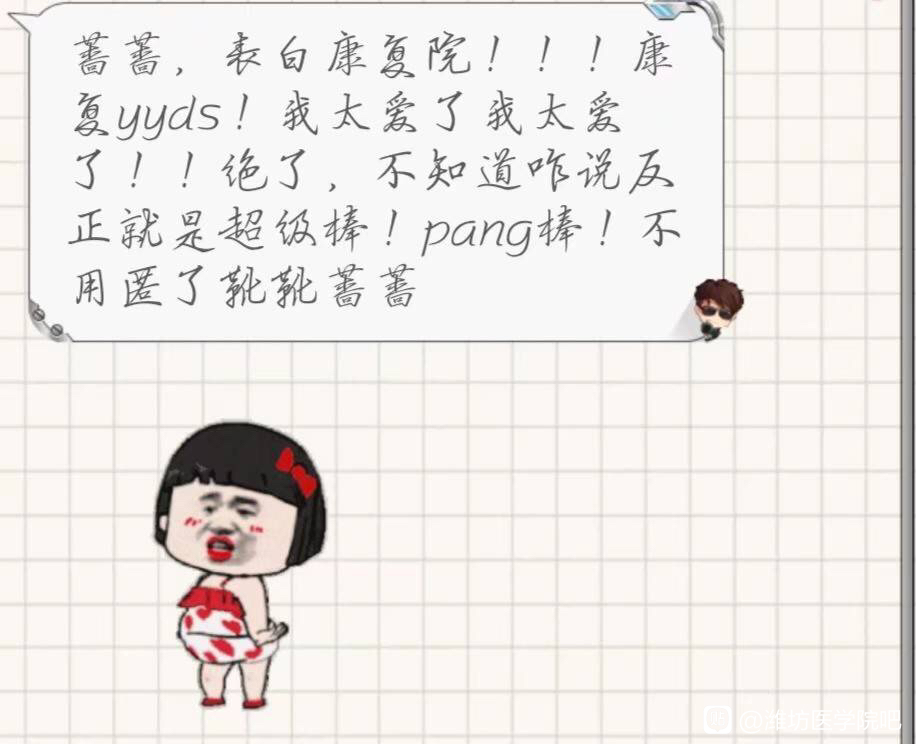 蔷蔷，表白康复院！！！康
复yyds！我太爱了我太爱
了！！绝了，不知道咋说反
正就是超级棒！pang棒！不
用匿了靴靴蔷蔷
@潍坊医学院吧